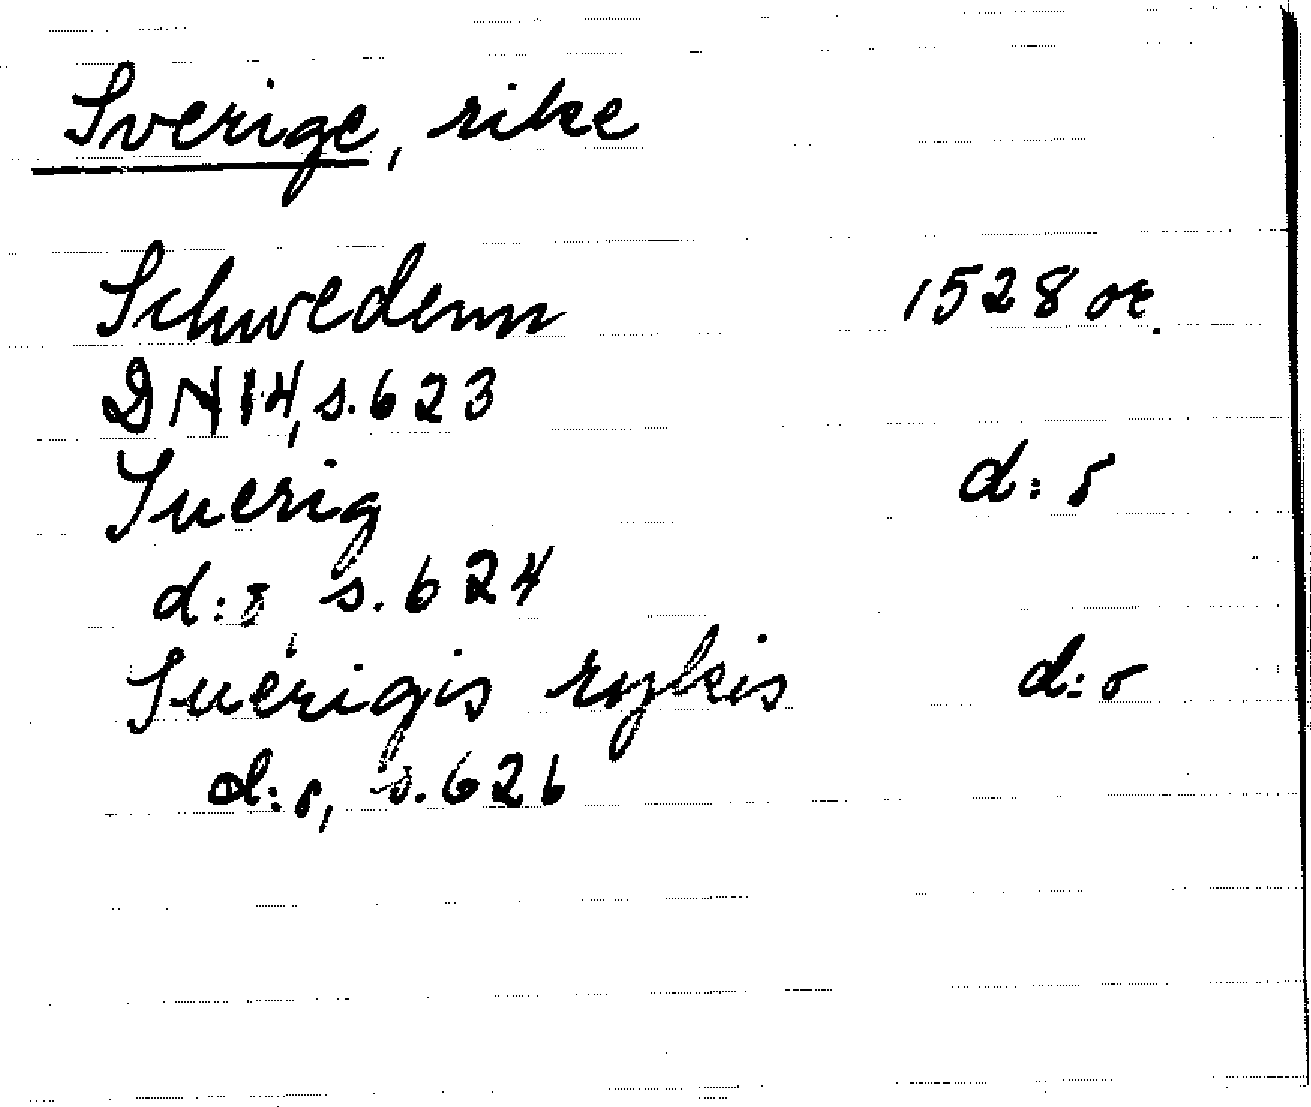 Sverige, rike
Schwedenn 1528 or.
DN 14, s. 623
Suerig d:o
d:o, s. 624
Suerigis rykis d:o
d:o, s. 626